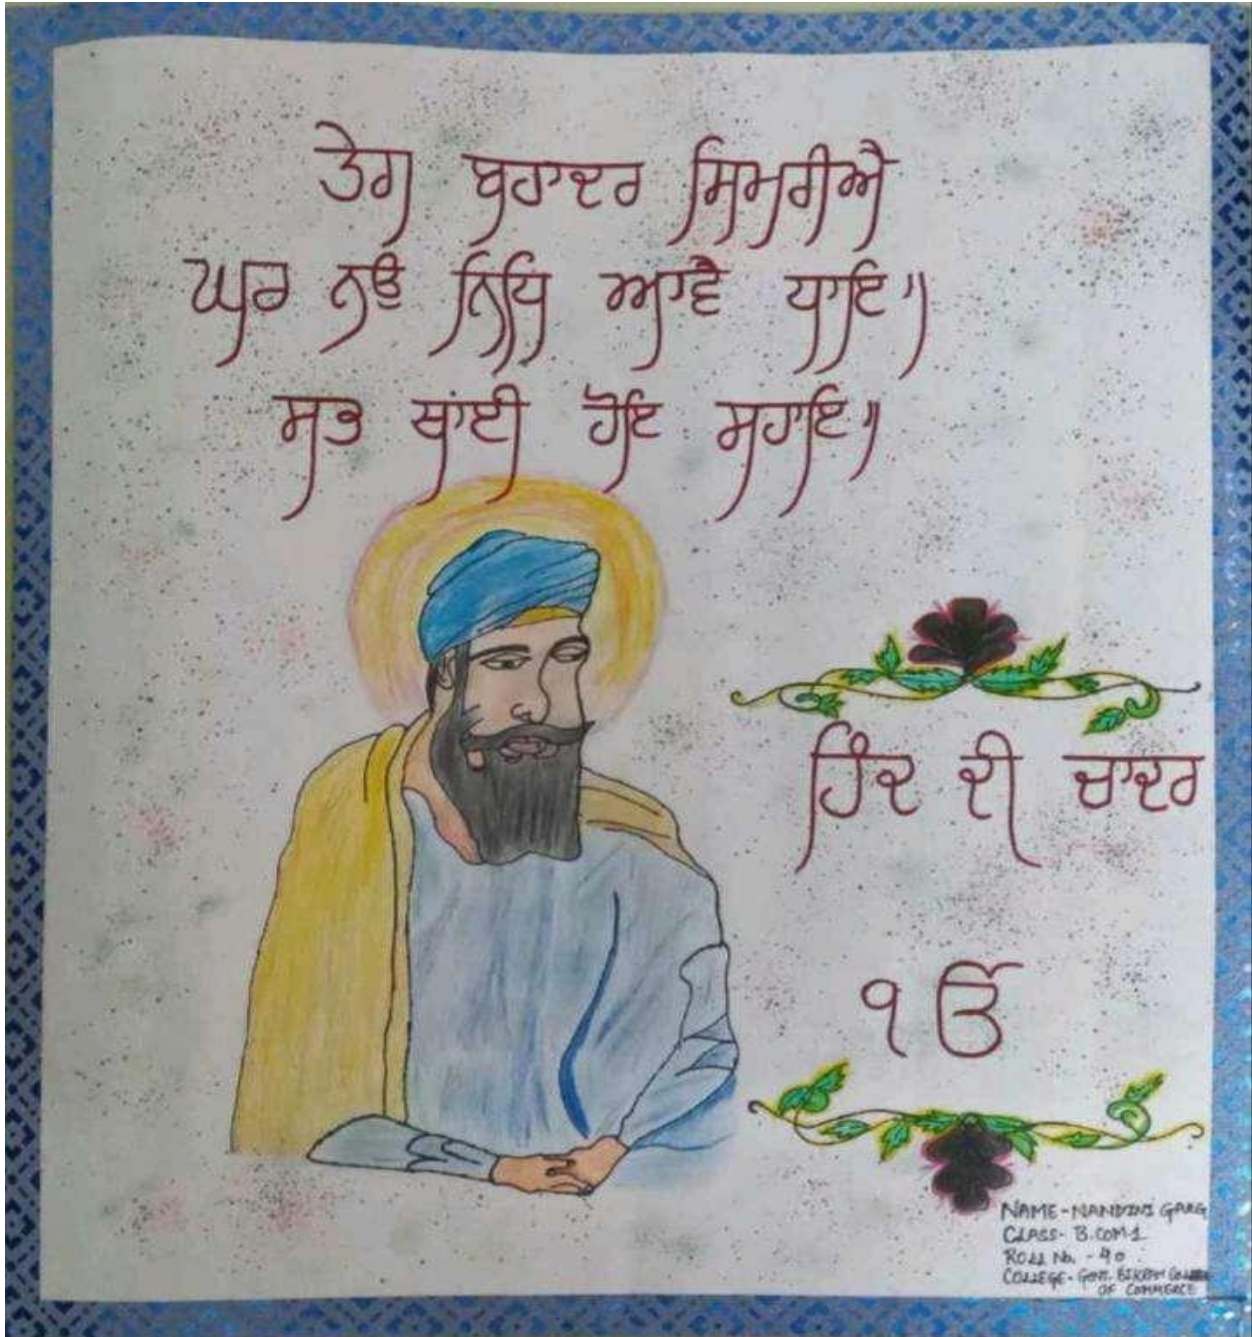 ਤੇਗ ਬਹਾਦਰ ਸਿਮਰੀਐ
ਘਰ ਨਉ ਨਿਧਿ ਆਵੈ ਧਾਇ॥
ਸਭ ਥਾਂਈ ਹੋਇ ਸਹਾਇ॥
ਹਿੰਦ ਦੀ ਚਾਦਰ
ੴ
NAME - NANDINI GARG
CLASS - B.COM-1
ROLL No. - 40
COLLEGE - GOVT. BIKRAM COLLEGE
OF COMMERCE